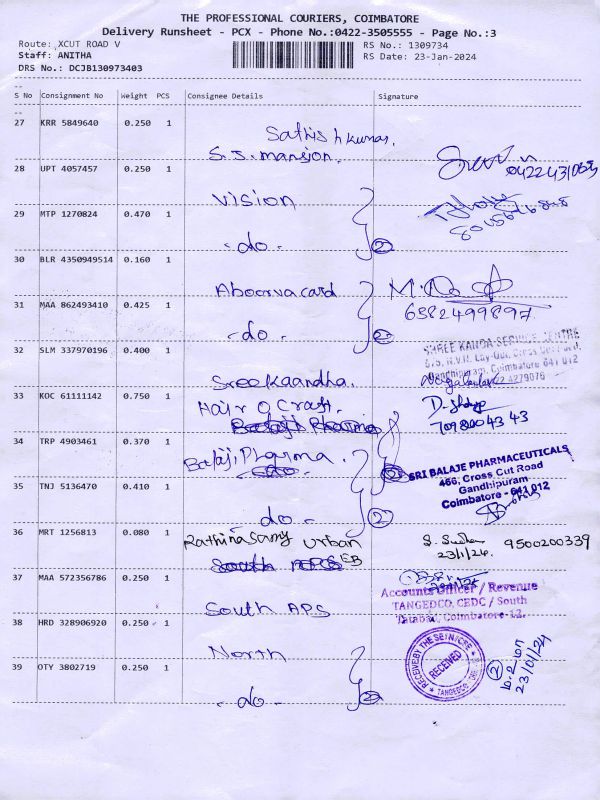 THE PROFESSIONAL COURIERS, COIMBATORE
Delivery Runsheet - PCX - Phone No.:0422-3505555 - Page No.:3
Route: XCUT ROAD V RS No.: 1309734
Staff: ANITHA RS Date: 23-Jan-2024
DRS No.: DCJB130973403
S No Consignment No Weight PCS Consignee Details Signature
27 KRR 5849640 0.250 1
Sathish kumar,
S.S. mansion.
28 UPT 4057457 0.250 1
Vision
29 MTP 1270824 0.470 1
-do- 2
30 BLR 4350949514 0.160 1
Aboorva card M.
6382499897
31 MAA 862493410 0.425 1
-do- 2
SHREE KANDA SERVICE CENTRE
Gandhipuram, Coimbatore 641 012
32 SLM 337970196 0.400 1
Sreekaandha.
33 KOC 61111142 0.750 1
Hair O Craft.
7098004343
34 TRP 4903461 0.370 1
Balaji Pharma.
SRI BALAJE PHARMACEUTICALS
466, Cross Cut Road
Gandhipuram
Coimbatore - 641 012
35 TNJ 5136470 0.410 1
do - 2
36 MRT 1256813 0.080 1
Rathinasamy Urban
EB
23/1/24. 9500200339
37 MAA 572356786 0.250 1
Accounts Officer / Revenue
TANGEDCO, CEDC / South
Tatabad, Coimbatore-12.
South APS
38 HRD 328906920 0.250 1
North
RECEIVED
TANGEDCO
39 OTY 3802719 0.250 1
2
23/01/24
-do- 2